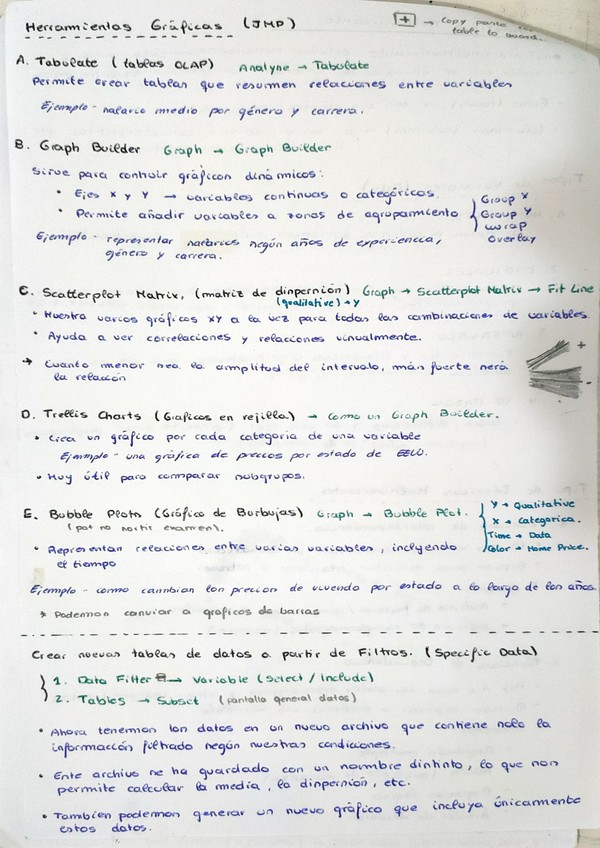 Herramientas Gráficas (JMP)
+ → Copy paste
table to word.
A. Tabulate (tablas OLAP) Analyne → Tabulate
Permite crear tablas que resumen relaciones entre variables
Ejemplo - salario medio por género y carrera.
B. Graph Builder Graph → Graph Builder
Sirve para contruir gráficon dinámicos:
• Ejes X y Y → variables continuas o categóricas.
• Permite añadir variables a zonas de agrupamiento
Group X
Group Y
wrap
Overlay
Ejemplo - representar salarios según años de experiencia,
género y carrera.
C. Scatterplot Matrix, (matriz de dispersión) Graph → Scatterplot Matrix → Fit Line
(qualitative) → y
• Muestra varios gráficos XY a la vez para todas las combinaciones de variables.
• Ayuda a ver correlaciones y relaciones visualmente.
→ Cuanto menor sea la amplitud del intervalo, más fuerte será
la relación
+
-
D. Trellis Charts (Graficos en rejilla) → como un Graph Builder.
• Crea un gráfico por cada categoria de una variable
Ejemplo - una gráfica de precios por estado de EEUU.
• Muy útil para comparar subgrupos.
E. Bubble Plots (Gráfico de Burbujas) Graph → Bubble Plot.
Y → Qualitative
X → Categorica.
Time → Data
Color → Home Price.
(pot no sortir examen).
• Representan relaciones entre varias variables, incluyendo
el tiempo
Ejemplo - como cambian los precios de vivienda por estado a lo largo de los años.
* Podemos canviar a graficos de barras
Crear nuevas tablas de datos a partir de Filtros. (Specific Data)
1. Data Filter → Variable (Select / Include)
2. Tables → Subset (pantalla general datos)
• Ahora tenemos los datos en un nuevo archivo que contiene solo la
información filtrado según nuestras condiciones.
• Este archivo se ha guardado con un nombre distinto, lo que nos
permite calcular la media, la dispersión, etc.
• Tambien podemos generar un nuevo gráfico que incluya únicamente
estos datos.